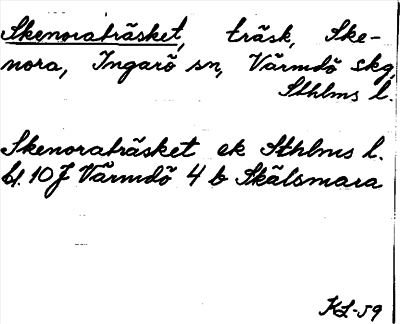 Skenoraträsket, träsk, Ske-
nora, Ingarö sn, Värmdö skg,
Sthlms l.
Skenoraträsket ek Sthlms l.
bl. 10J Värmdö 4 b Skälsmara
KL-59